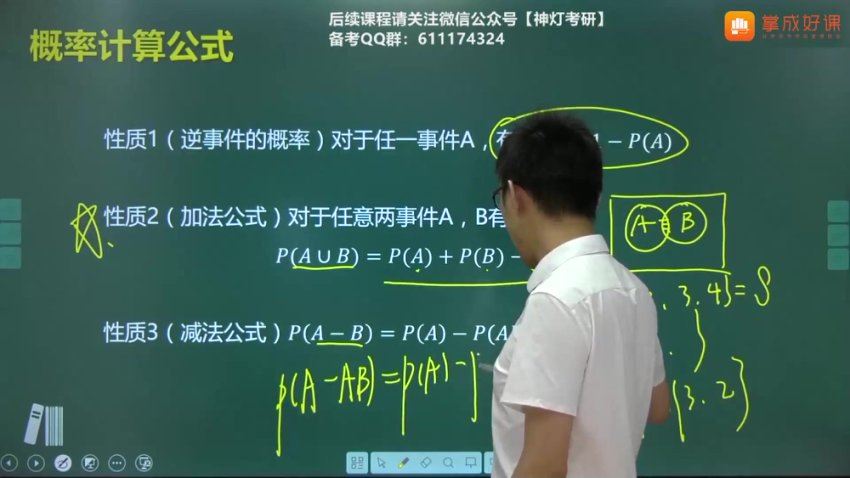 后续课程请关注微信公众号【神灯考研】
备考QQ群：611174324
掌成好课
概率计算公式
性质1（逆事件的概率）对于任一事件A，有
1 − P(A)
性质2（加法公式）对于任意两事件A，B有
A B
P(A ∪ B) = P(A) + P(B) −
3. 4} = S
性质3（减法公式）P(A − B) = P(A) − P(A
P(A − AB) = P(A) −
{3. 2}